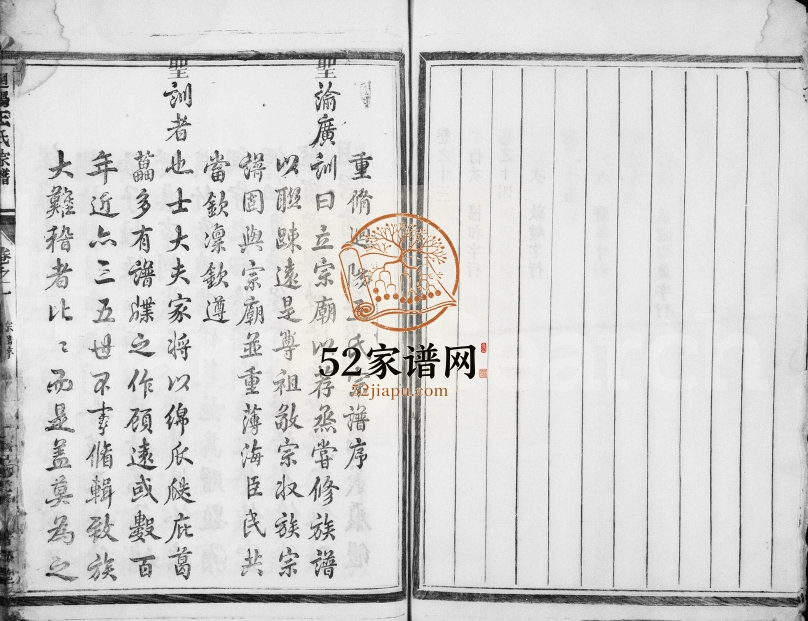 重脩
氏宗譜序
聖諭廣訓曰立宗廟以荐烝嘗修族譜
以聯疎遠是尊祖敬宗收族宗
譜固與宗廟並重薄海臣民共
當欽凜欽遵
聖訓者也士大夫家將以綿瓜瓞庇葛
藟多有譜牒之作顧遠或數百
年近亦三五世不事脩輯致族
大難稽者比〻而是蓋莫為之
氏宗譜
卷之一
52家谱网
52jiapu.com